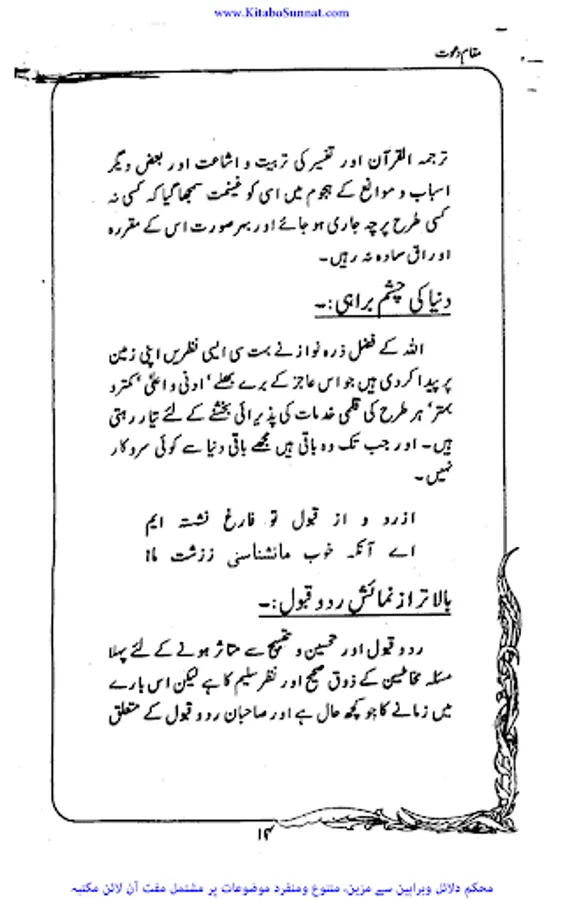 www.KitaboSunnat.com
مقام دعوت
ترجمہ القرآن اور تفسیر کی تربیت و اشاعت اور بعض دیگر
اسباب و موانع کے ہجوم میں اسی کو غنیمت سمجھا گیا کہ کسی نہ
کسی طرح پرچہ جاری ہو جائے اور بہر صورت اس کے مقررہ
اوراق سادہ نہ رہیں۔
دنیا کی چشم براہی:۔
اللہ کے فضل ذرہ نواز نے بہت سی ایسی نظریں اپنی زمین
پر پیدا کر دی ہیں جو اس عاجز کے برے بھلے ' ادنی و اعلیٰ ' کمتر و
بہتر ' ہر طرح کی قلمی خدمات کی پذیرائی بخشنے کے لئے تیار رہتی
ہیں۔ اور جب تک وہ باقی ہیں مجھے باقی دنیا سے کوئی سروکار
نہیں۔
ازرد و از قبول تو فارغ نشستہ ایم
اے آنکہ خوب مانشناسی ززشت ما!
بالا تر از نمائش رد و قبول:۔
رد و قبول اور تحسین و تقبیح سے متاثر ہونے کے لئے پہلا
مسئلہ مخاطبین کے ذوق صحیح اور نظر سلیم کا ہے لیکن اس بارے
میں زمانے کا جو کچھ حال ہے اور صاحبان رد و قبول کے متعلق
۱۴
محکم دلائل وبراہین سے مزین، متنوع ومنفرد موضوعات پر مشتمل مفت آن لائن مکتبہ